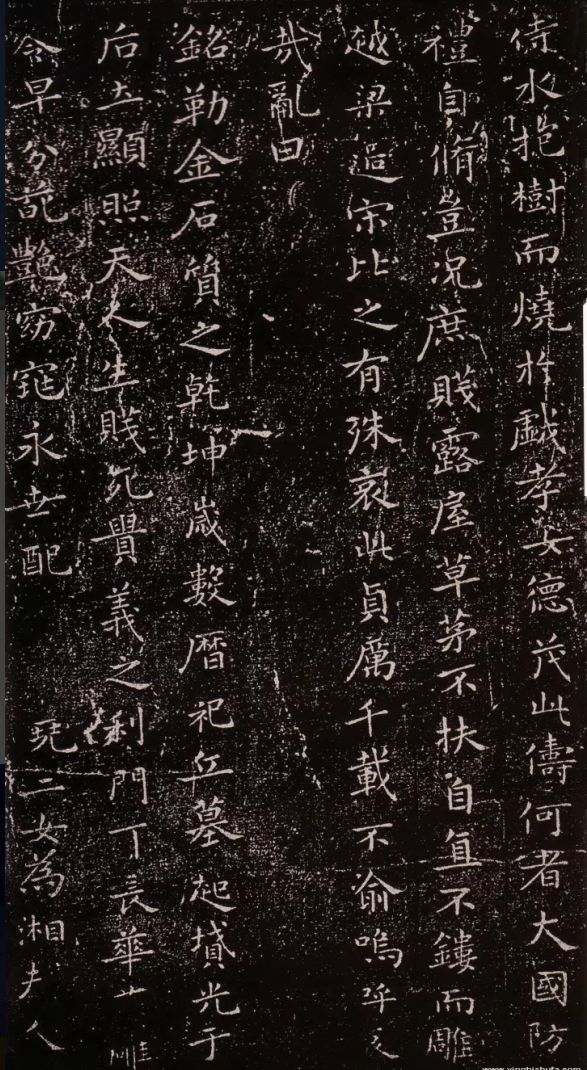 待水抱樹而燒於戲孝女德茂此儔何者大國防
禮自脩豈況庶賤露屋草茅不扶自直不鏤而雕
越梁過宋比之有殊哀此貞厲千載不渝嗚呼
哉亂曰
銘勒金石質之乾坤歲數曆祀丘墓起墳光于
后土顯照天人生賤死貴義之利門長華
令早分葩艷窈窕永世配堯二女為湘夫人